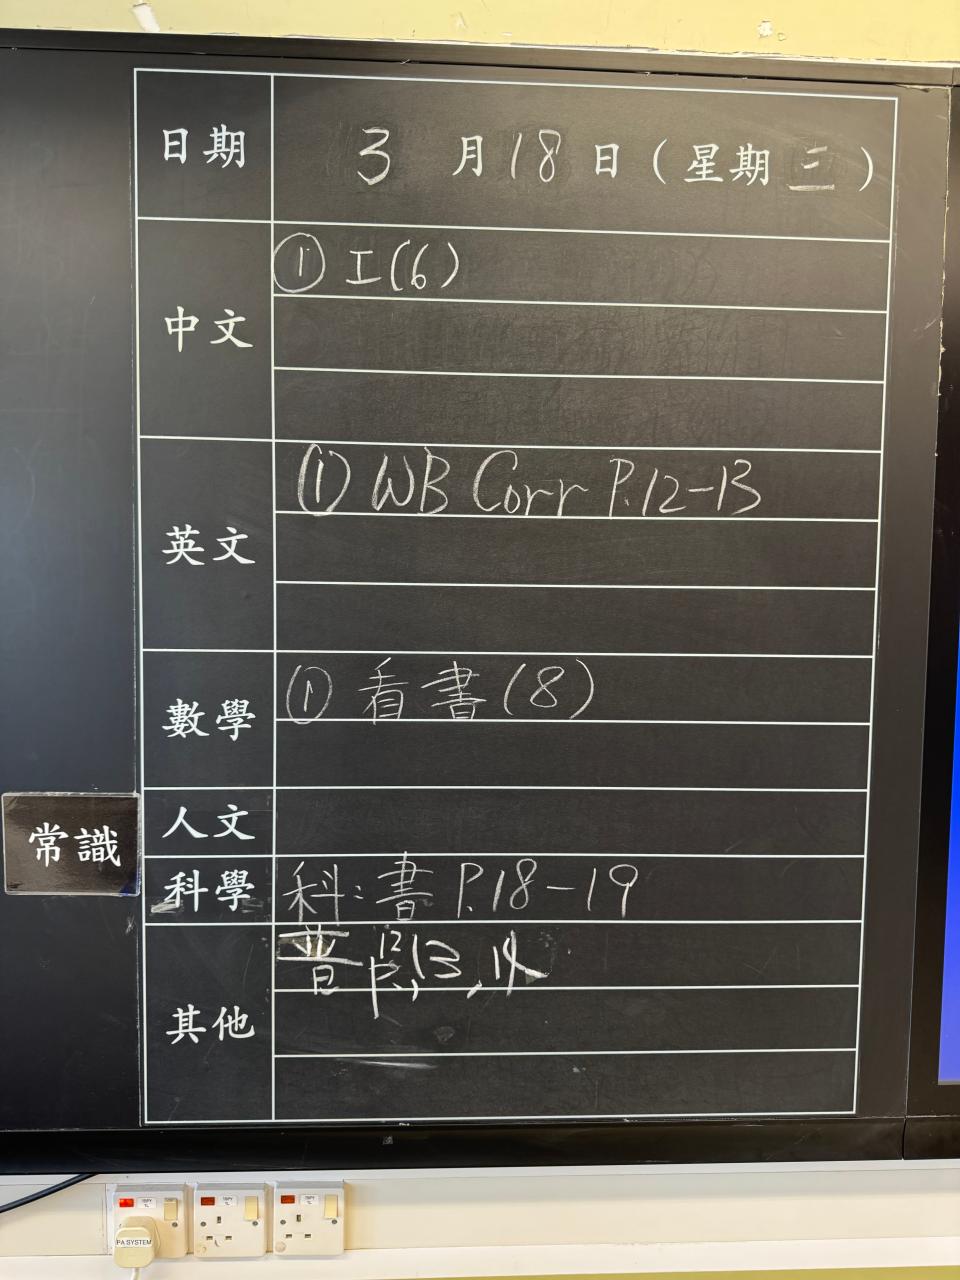 日期 3 月 18 日（星期 三）
中文 ① 工(6)
英文 ① WB Corr P.12-13
數學 ① 看書(8)
人文
常識
科學 科：書 P.18-19
其他 普 P.12,13,14
PA SYSTEM